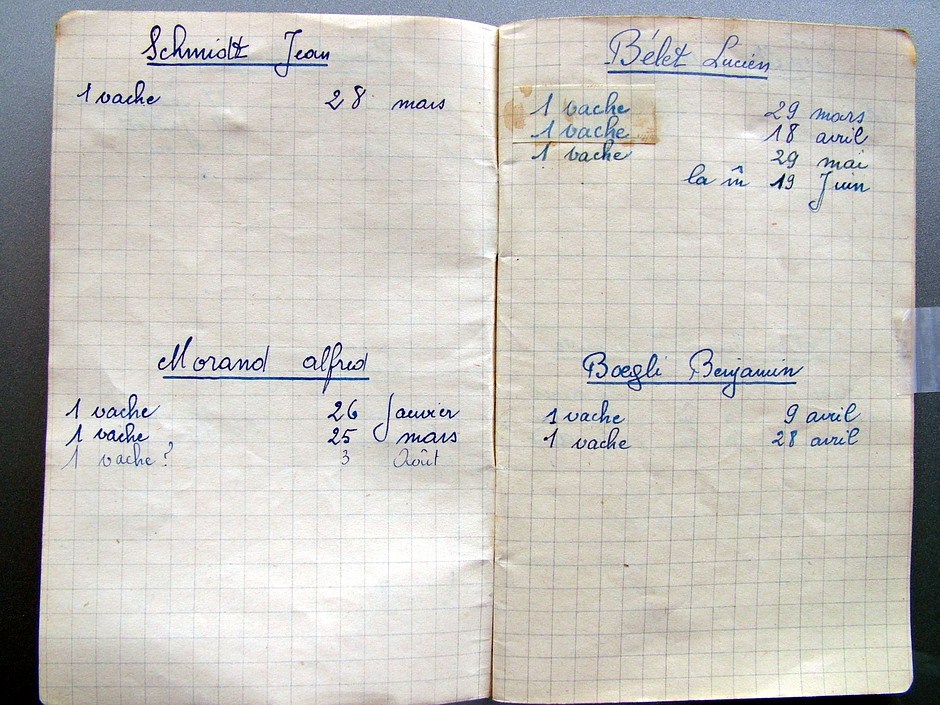 Schmidt Jean
1 vache 28 mars
Morand alfred
1 vache 26 Janvier
1 vache 25 mars
1 vache? 3 Août
Bélet Lucien
1 vache 29 mars
1 vache 18 avril
1 vache 29 mai
la m̂ 19 Juin
Boegli Benjamin
1 vache 9 avril
1 vache 28 avril